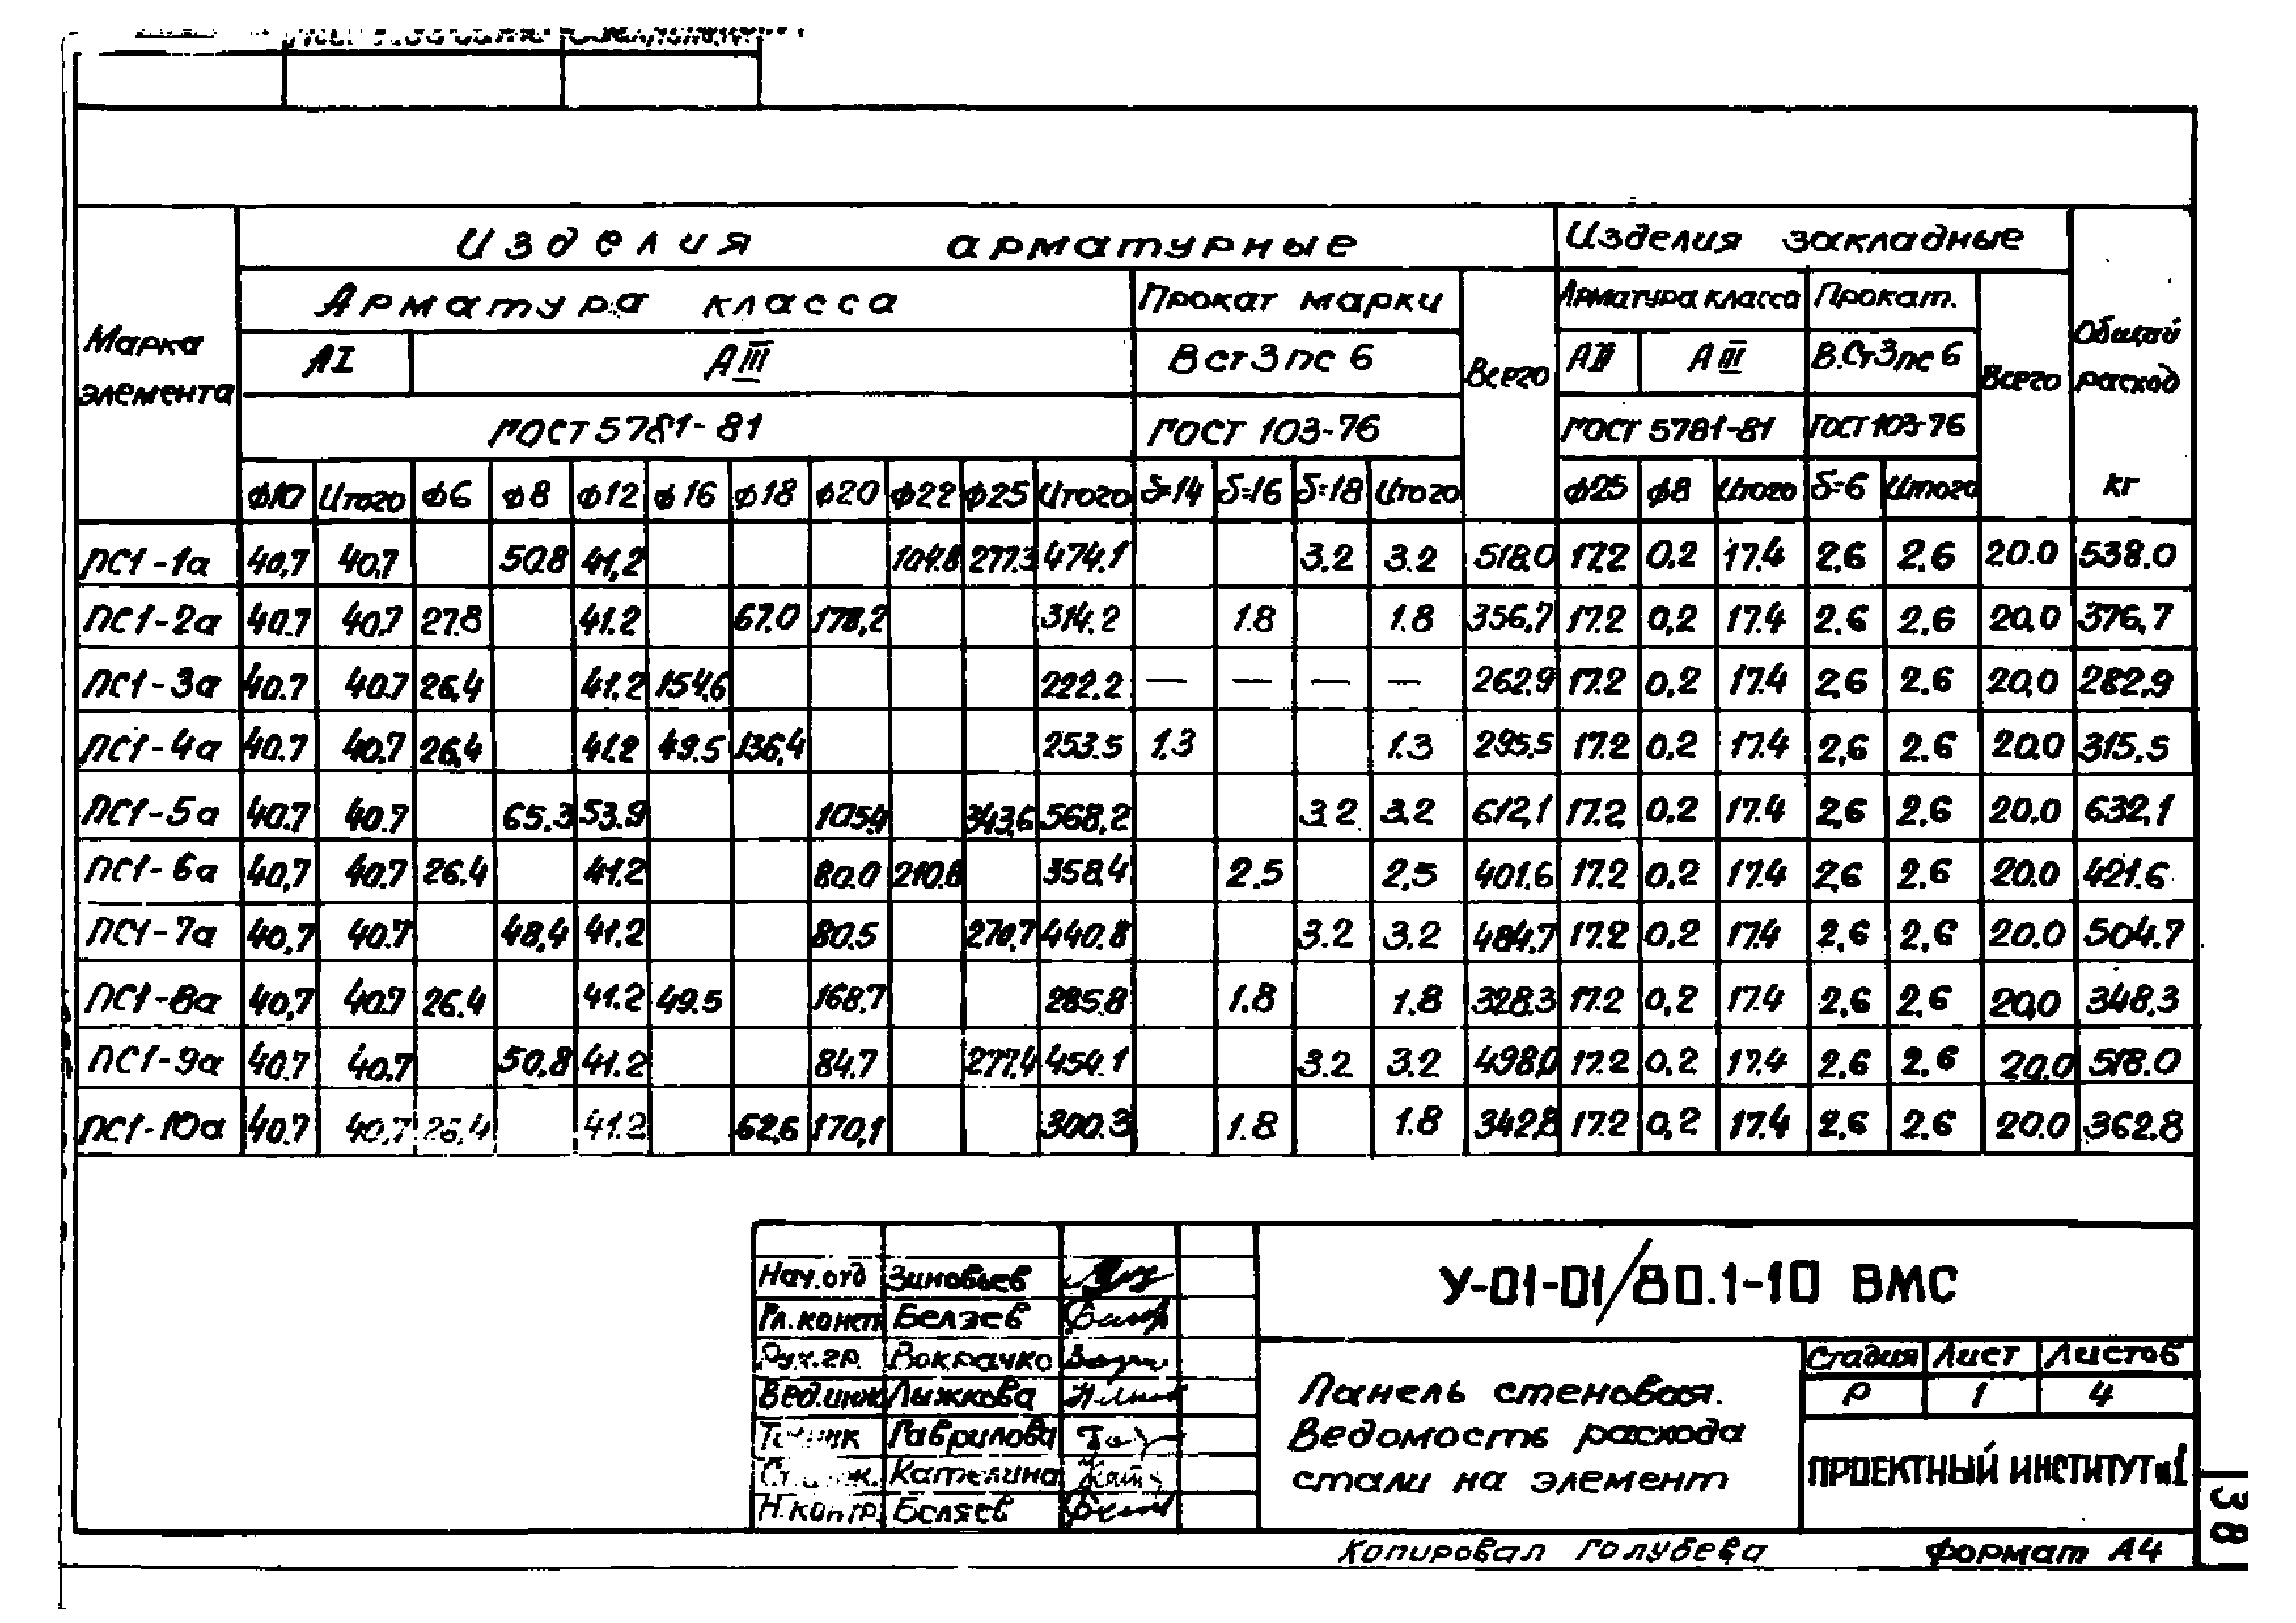 Изделия арматурные Изделия закладные
Арматура класса Прокат марки Арматура класса Прокат.
Марка элемента АI АIII Вст3пс6 Всего АII АIII В.Ст3пс6 Всего Общий расход
ГОСТ 5781-81 ГОСТ 103-76 ГОСТ 5781-81 ГОСТ 103-76
ф10 Итого ф6 ф8 ф12 ф16 ф18 ф20 ф22 ф25 Итого δ=14 δ=16 δ=18 Итого ф25 ф8 Итого δ=6 Итого кг
ПС1-1а 40,7 40.7 50.8 41,2 104.8 277.3 474.1 3.2 3.2 518.0 17.2 0,2 17.4 2,6 2.6 20.0 538.0
ПС1-2а 40.7 40.7 27.8 41.2 67.0 178,2 314.2 1.8 1.8 356,7 17.2 0,2 17.4 2.6 2,6 20,0 376,7
ПС1-3а 40.7 40.7 26,4 41.2 154,6 222.2 — — — — 262,9 17.2 0.2 17.4 2,6 2.6 20,0 282,9
ПС1-4а 40.7 40.7 26,4 41.2 49.5 136,4 253.5 1.3 1.3 295,5 17.2 0,2 17.4 2,6 2.6 20.0 315,5
ПС1-5а 40.7 40.7 65.3 53.9 105.4 343,6 568,2 3.2 3.2 612,1 17.2 0.2 17.4 2,6 2.6 20.0 632,1
ПС1-6а 40,7 40.7 26.4 41.2 80.0 210.8 358,4 2.5 2,5 401.6 17.2 0.2 17.4 2,6 2.6 20.0 421.6
ПС1-7а 40,7 40.7 48,4 41.2 80.5 270,7 440.8 3.2 3.2 484,7 17.2 0.2 17.4 2,6 2,6 20.0 504.7
ПС1-8а 40,7 40.7 26.4 41.2 49.5 168,7 285.8 1.8 1.8 328.3 17.2 0,2 17.4 2,6 2,6 20,0 348,3
ПС1-9а 40.7 40.7 50,8 41.2 84.7 277.4 454.1 3.2 3.2 498,0 17.2 0.2 17.4 2.6 2.6 20.0 518.0
ПС1-10а 40.7 40,7 26,4 41.2 62,6 170,1 300.3 1.8 1.8 342,8 17.2 0,2 17.4 2,6 2.6 20.0 362.8
У-01-01/80.1-10 ВМС
Нач.отд Зиновьев
Гл.конст Беляев
Рук.гр. Вокрачко
Вед.инж Лыжкова
Техник Гаврилова
Кателина
Н.контр. Беляев
Панель стеновая.
Ведомость расхода
стали на элемент
Стадия Лист Листов
Р 1 4
ПРОЕКТНЫЙ ИНСТИТУТ №1
Копировал Голубева Формат А4
38